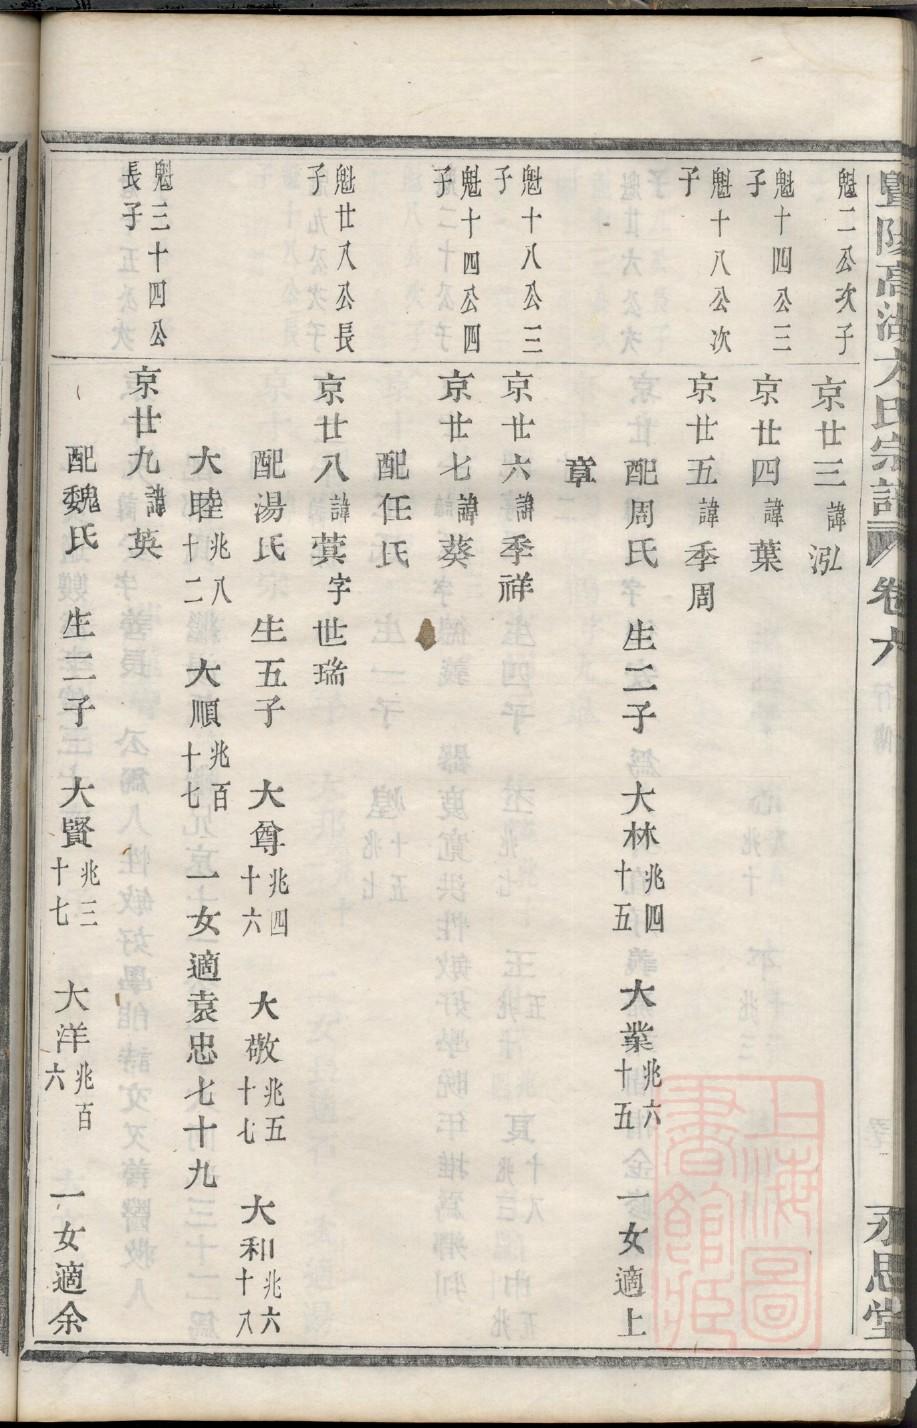 暨陽高湖氏宗譜 卷六 永思堂
魁二公次子
京廿三諱泓
魁十四公三子
京廿四諱葉
魁十八公次子
京廿五諱季周
配周氏 生二子 大林兆四十五 大業兆六十五 一女適上
章
魁十八公三子
京廿六諱季祥
魁十四公四子
京廿七諱葵
配任氏
魁廿八公長子
京廿八諱蓂字世瑞
配湯氏 生五子 大尊兆四十六 大敬兆五十七 大和兆六十八
大睦兆八十二 大順兆百十七 一女適袁忠七十九
魁三十四公長子
京廿九諱英
配魏氏 生二子 大賢兆三十七 大洋兆百六 一女適余
上海圖書館藏